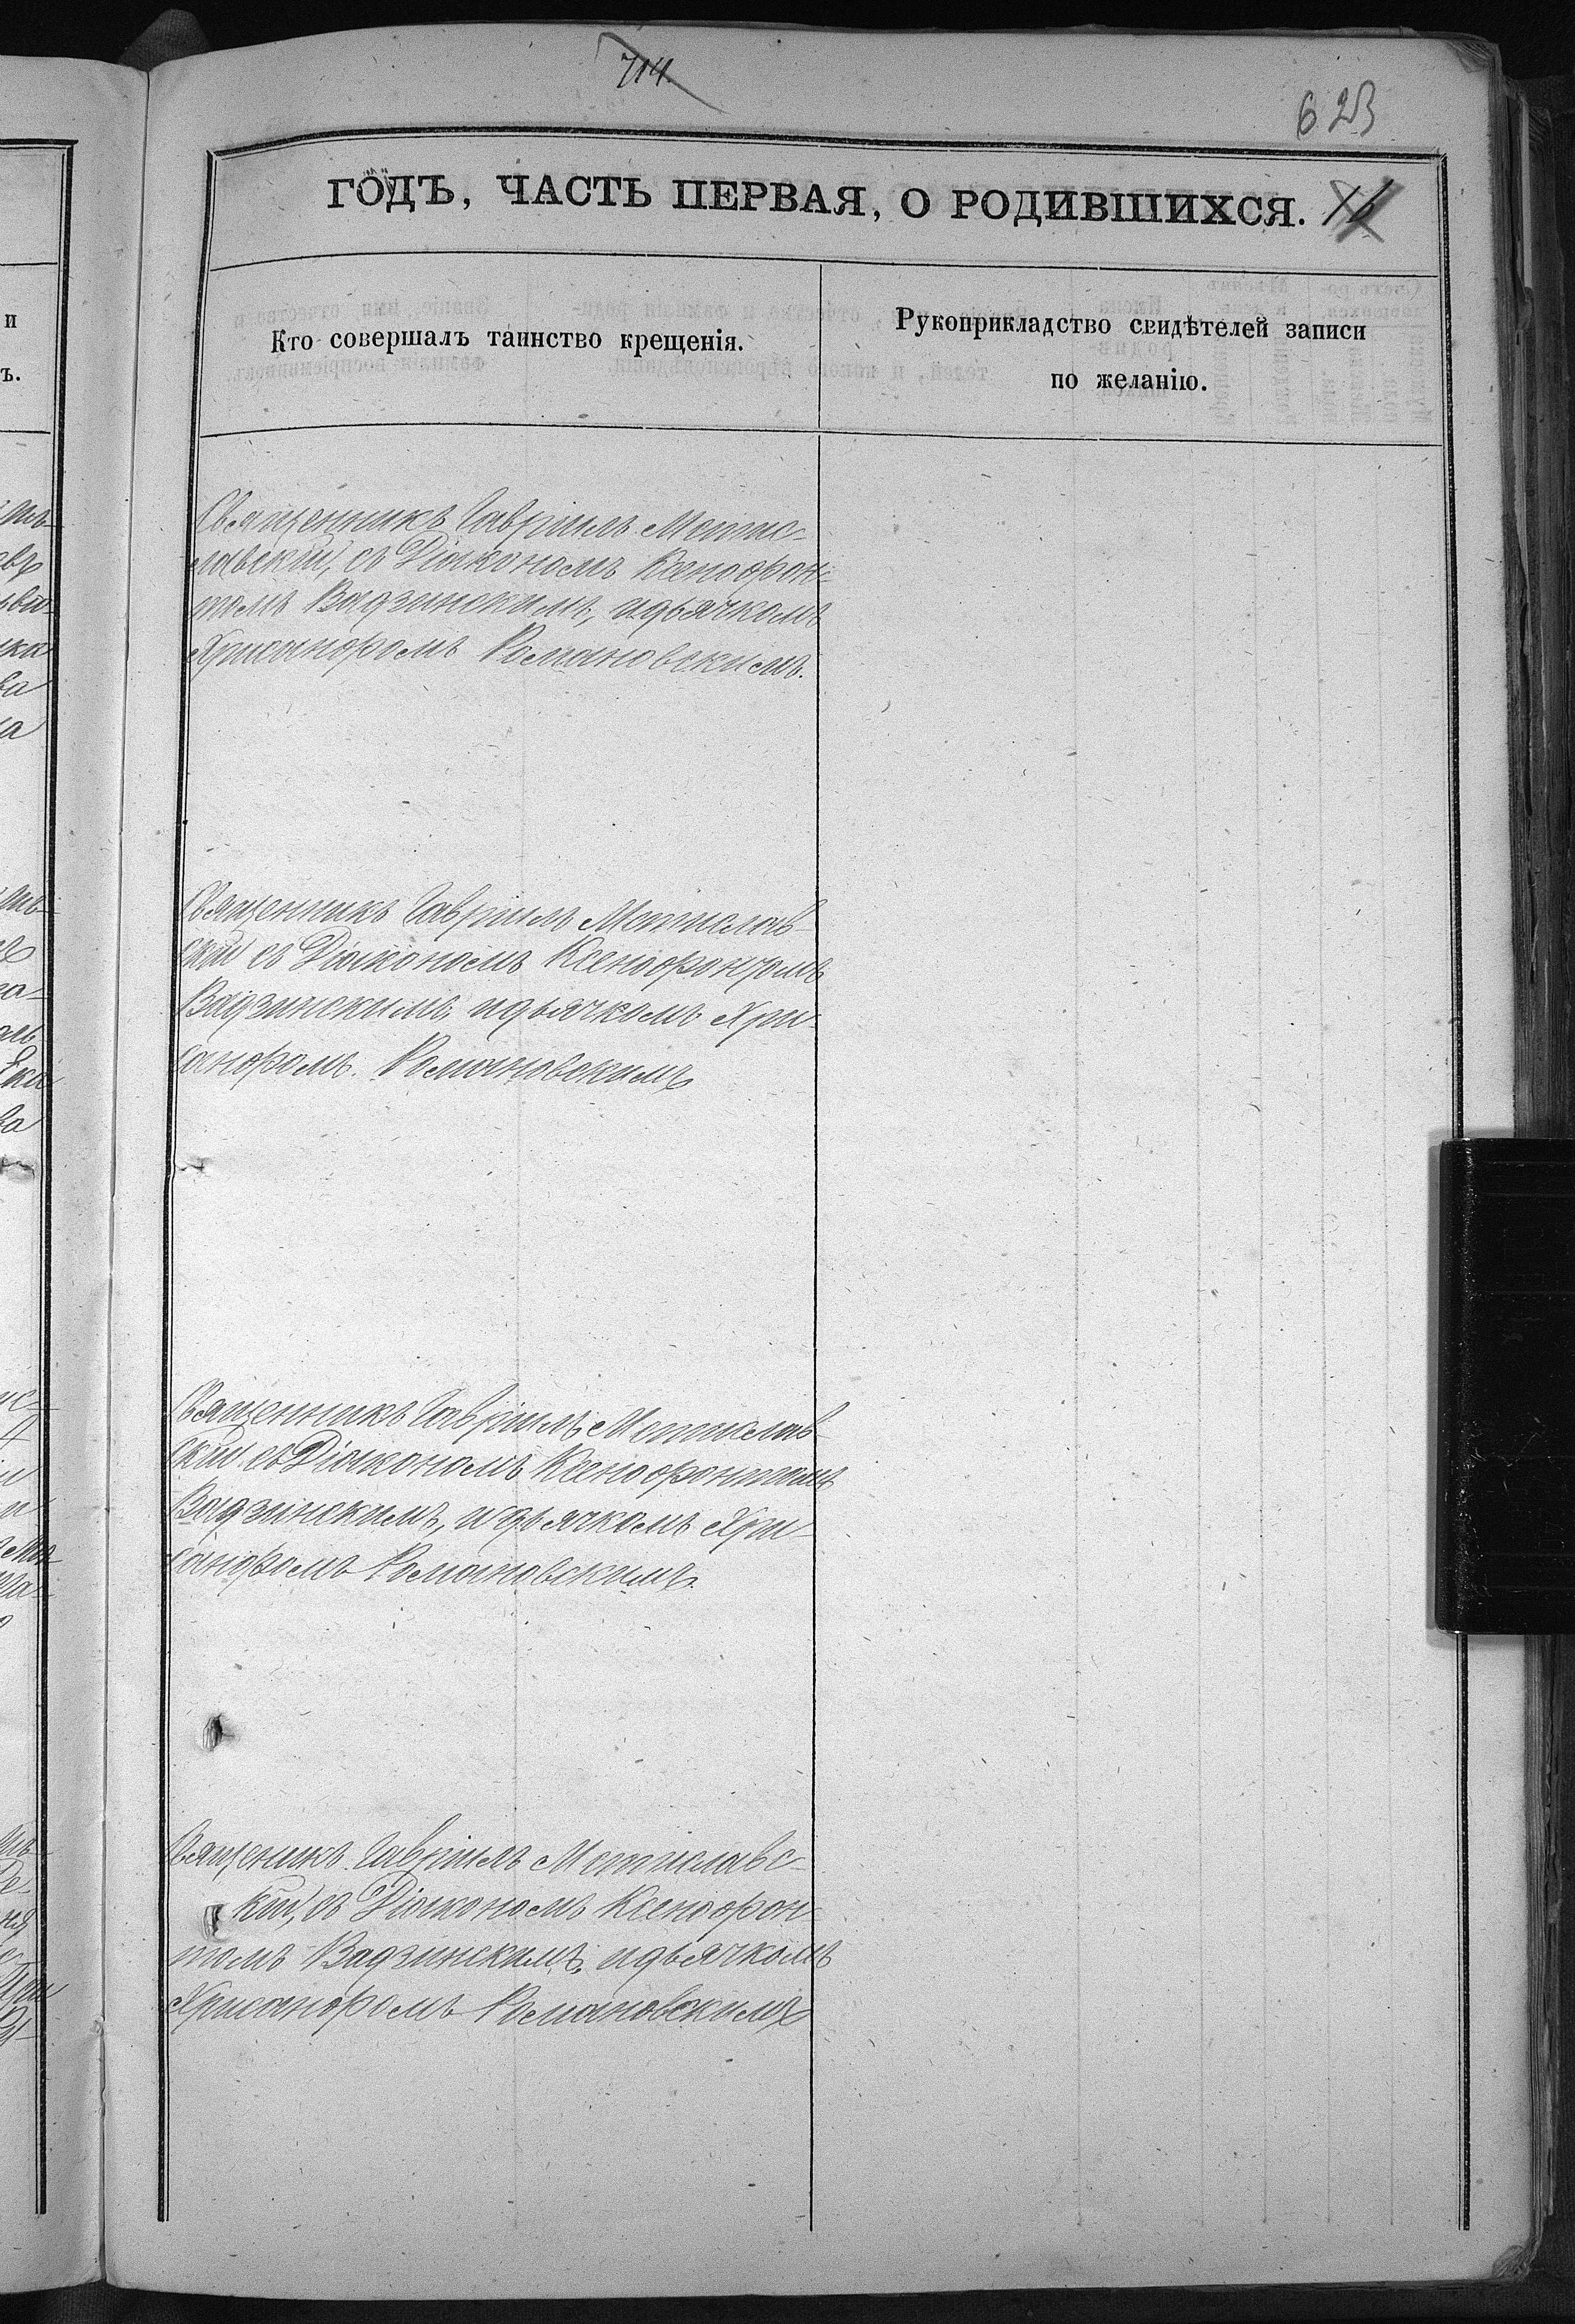 714.
623
ГОДЪ, ЧАСТЬ ПЕРВАЯ, О РОДИВШИХСЯ. 16
Кто совершалъ таинство крещенія.
Рукоприкладство свидѣтелей записи
по желанію.
Священникъ Гавріилъ Мстис-
лавскій, съ Діакономъ Ксенофон-
томъ Вадзинскимъ, и дьячкомъ
Хрисанфомъ Романовскимъ.
Священникъ Гавріилъ Мстислав-
скій съ Діакономъ Ксенофонтомъ
Вадзинскимъ, и дьячкомъ Хри-
санфомъ. Романовскимъ
Священникъ Гавріилъ Мстислав-
скій съ Діакономъ Ксенофонтомъ
Вадзинскимъ, и дьячкомъ Хри-
санфомъ Романовскимъ.
Священикъ Гавріилъ Мстиславс-
кій, съ Діакономъ Ксенофон-
томъ Вадзинскимъ, и дьячкомъ
Хрисанфомъ Романовскимъ